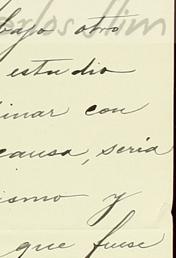 Carlos Slim
bajo otro
estudio
inar con
causa, sería
ismo y
que fuese